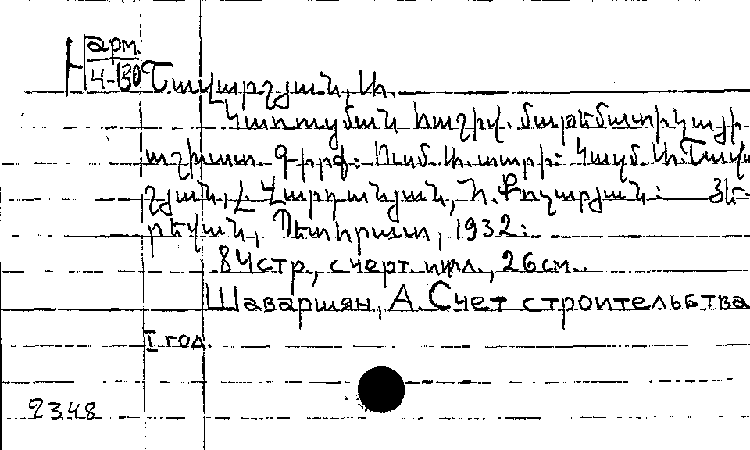 арм.
Н 4-130 Շավարշյան, Ա.
Կառուցման հաշիվ. մաթեմատիկայի
աշխատ. գիրք: Ուսմ. Ա. տարի: Կազմ. Ա. Շավ
շյան, Հ. Վարդանյան, Ն. Քոչարյան: Յե-
րեվան, Պետհրատ, 1932:
84 стр., с черт. илл., 26 см.
Шаваршян, А. Счет строительства
I год.
2348